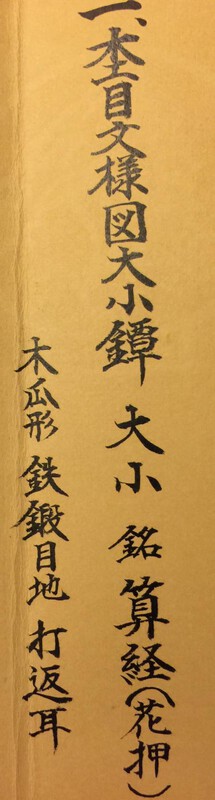 一、杢目文様図大小鐔 大小 銘 算経(花押)
木瓜形 鉄鍛目地 打返耳